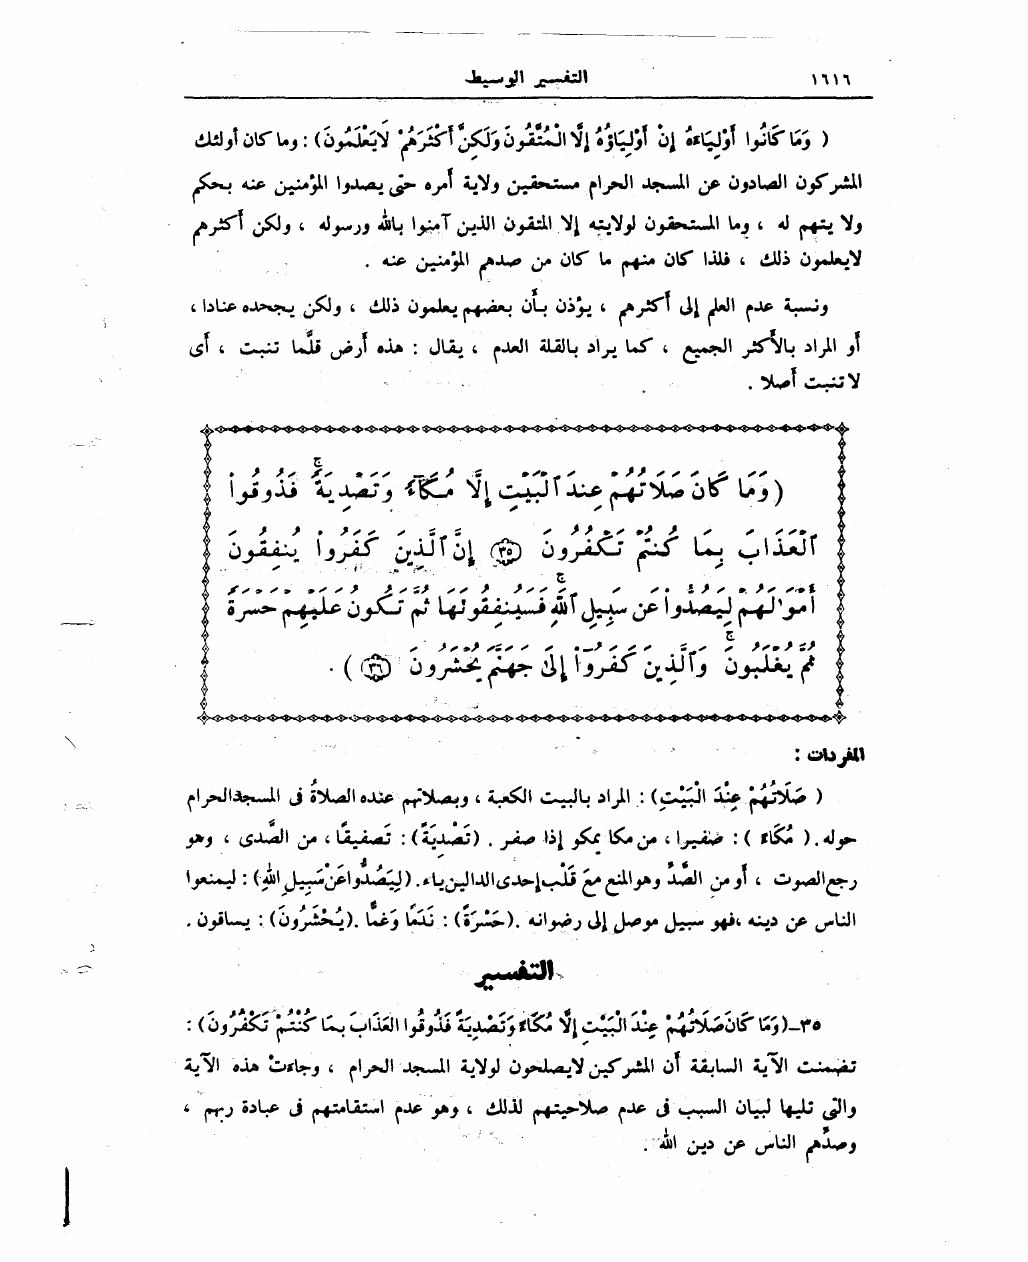 ١٦١٦
التفسير الوسيط
( وَمَا كَانُوا أَوْلِيَاءَهُ إِنْ أَوْلِيَاؤُهُ إِلَّا الْمُتَّقُونَ وَلَكِنَّ أَكْثَرَهُمْ لَايَعْلَمُونَ) : وما كان أولئك
المشركون الصادون عن المسجد الحرام مستحقين ولاية أمره حتى يصدوا المؤمنين عنه بحكم
ولايتهم له ، وما المستحقون لولايته إلا المتقون الذين آمنوا بالله ورسوله ، ولكن أكثرهم
لايعلمون ذلك ، فلذا كان منهم ما كان من صدهم المؤمنين عنه .
ونسبة عدم العلم إلى أكثرهم ، يؤذن بأن بعضهم يعلمون ذلك ، ولكن يجحده عنادا ،
أو المراد بالأكثر الجميع ، كما يراد بالقلة العدم ، يقال : هذه أرض قلَّما تنبت ، أى
لا تنبت أصلا .
(وَمَا كَانَ صَلَاتُهُمْ عِندَ ٱلْبَيْتِ إِلَّا مُكَآءً وَتَصْدِيَةً ۚ فَذُوقُوا۟
ٱلْعَذَابَ بِمَا كُنتُمْ تَكْفُرُونَ ٣٥ إِنَّ ٱلَّذِينَ كَفَرُوا۟ يُنفِقُونَ
أَمْوَٰلَهُمْ لِيَصُدُّوا۟ عَن سَبِيلِ ٱللَّهِ ۚ فَسَيُنفِقُونَهَا ثُمَّ تَكُونُ عَلَيْهِمْ حَسْرَةً
ثُمَّ يُغْلَبُونَ ۗ وَٱلَّذِينَ كَفَرُوٓا۟ إِلَىٰ جَهَنَّمَ يُحْشَرُونَ ٣٦ ) .
المفردات :
( صَلَاتُهُمْ عِنْدَ الْبَيْتِ) : المراد بالبيت الكعبة ، وبصلاتهم عنده الصلاةُ فى المسجد الحرام
حوله . ( مُكَاءً ) : صفيرا ، من مكا يمكو إذا صفر . (تَصْدِيَةً) : تصفيقًا ، من الصَّدى ، وهو
رجع الصوت ، أو من الصَّدِّ وهو المنع مع قَلْب إحدى الدالين ياء . (لِيَصُدُّوا عَنْ سَبِيلِ اللهِ) : ليمنعوا
الناس عن دينه ،فهو سبيل موصل إلى رضوانه .(حَسْرَةً) : نَدَمًا وَغمًّا .(يُحْشَرُونَ) : يساقون .
التفسير
٣٥-(وَمَا كَانَ صَلَاتُهُمْ عِنْدَ الْبَيْتِ إِلَّا مُكَاءً وَتَصْدِيَةً فَذُوقُوا الْعَذَابَ بِمَا كُنْتُمْ تَكْفُرُونَ) :
تضمنت الآية السابقة أن المشركين لايصلحون لولاية المسجد الحرام ، وجاءت هذه الآية
والتى تليها لبيان السبب فى عدم صلاحيتهم لذلك ، وهو عدم استقامتهم فى عبادة ربهم ،
وصدُّهم الناس عن دين الله .